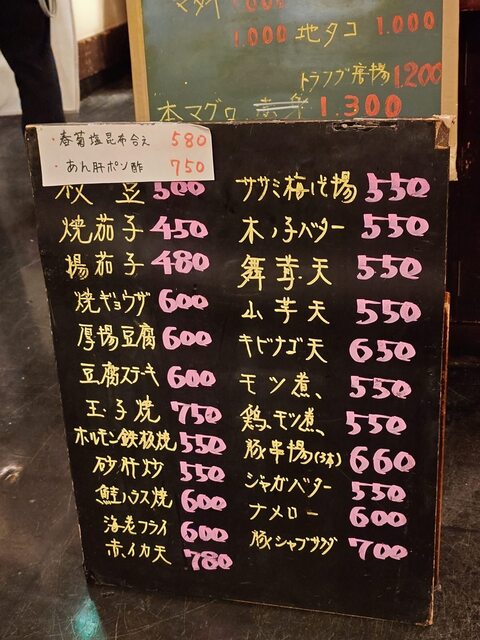 1.000 地タコ 1.000
トラフブ唐揚 1.200
本マグロ 1.300
・春菊塩昆布合え 580
・あん肝ポン酢 750
枝豆 500
焼茄子 450
揚茄子 480
焼ギョウザ 600
厚揚豆腐 600
豆腐ステーキ 600
玉子焼 750
ホルモン鉄板焼 550
砂肝炒 550
鮭ハラス焼 600
海老フライ 600
赤イカ天 780
ササミ梅しそ揚 550
木ノ子バター 550
舞茸天 550
山芋天 550
キビナゴ天 650
モツ煮 550
鶏モツ煮 550
豚串揚(3本) 660
ジャガバター 550
ナメロー 600
豚シャブサラダ 700